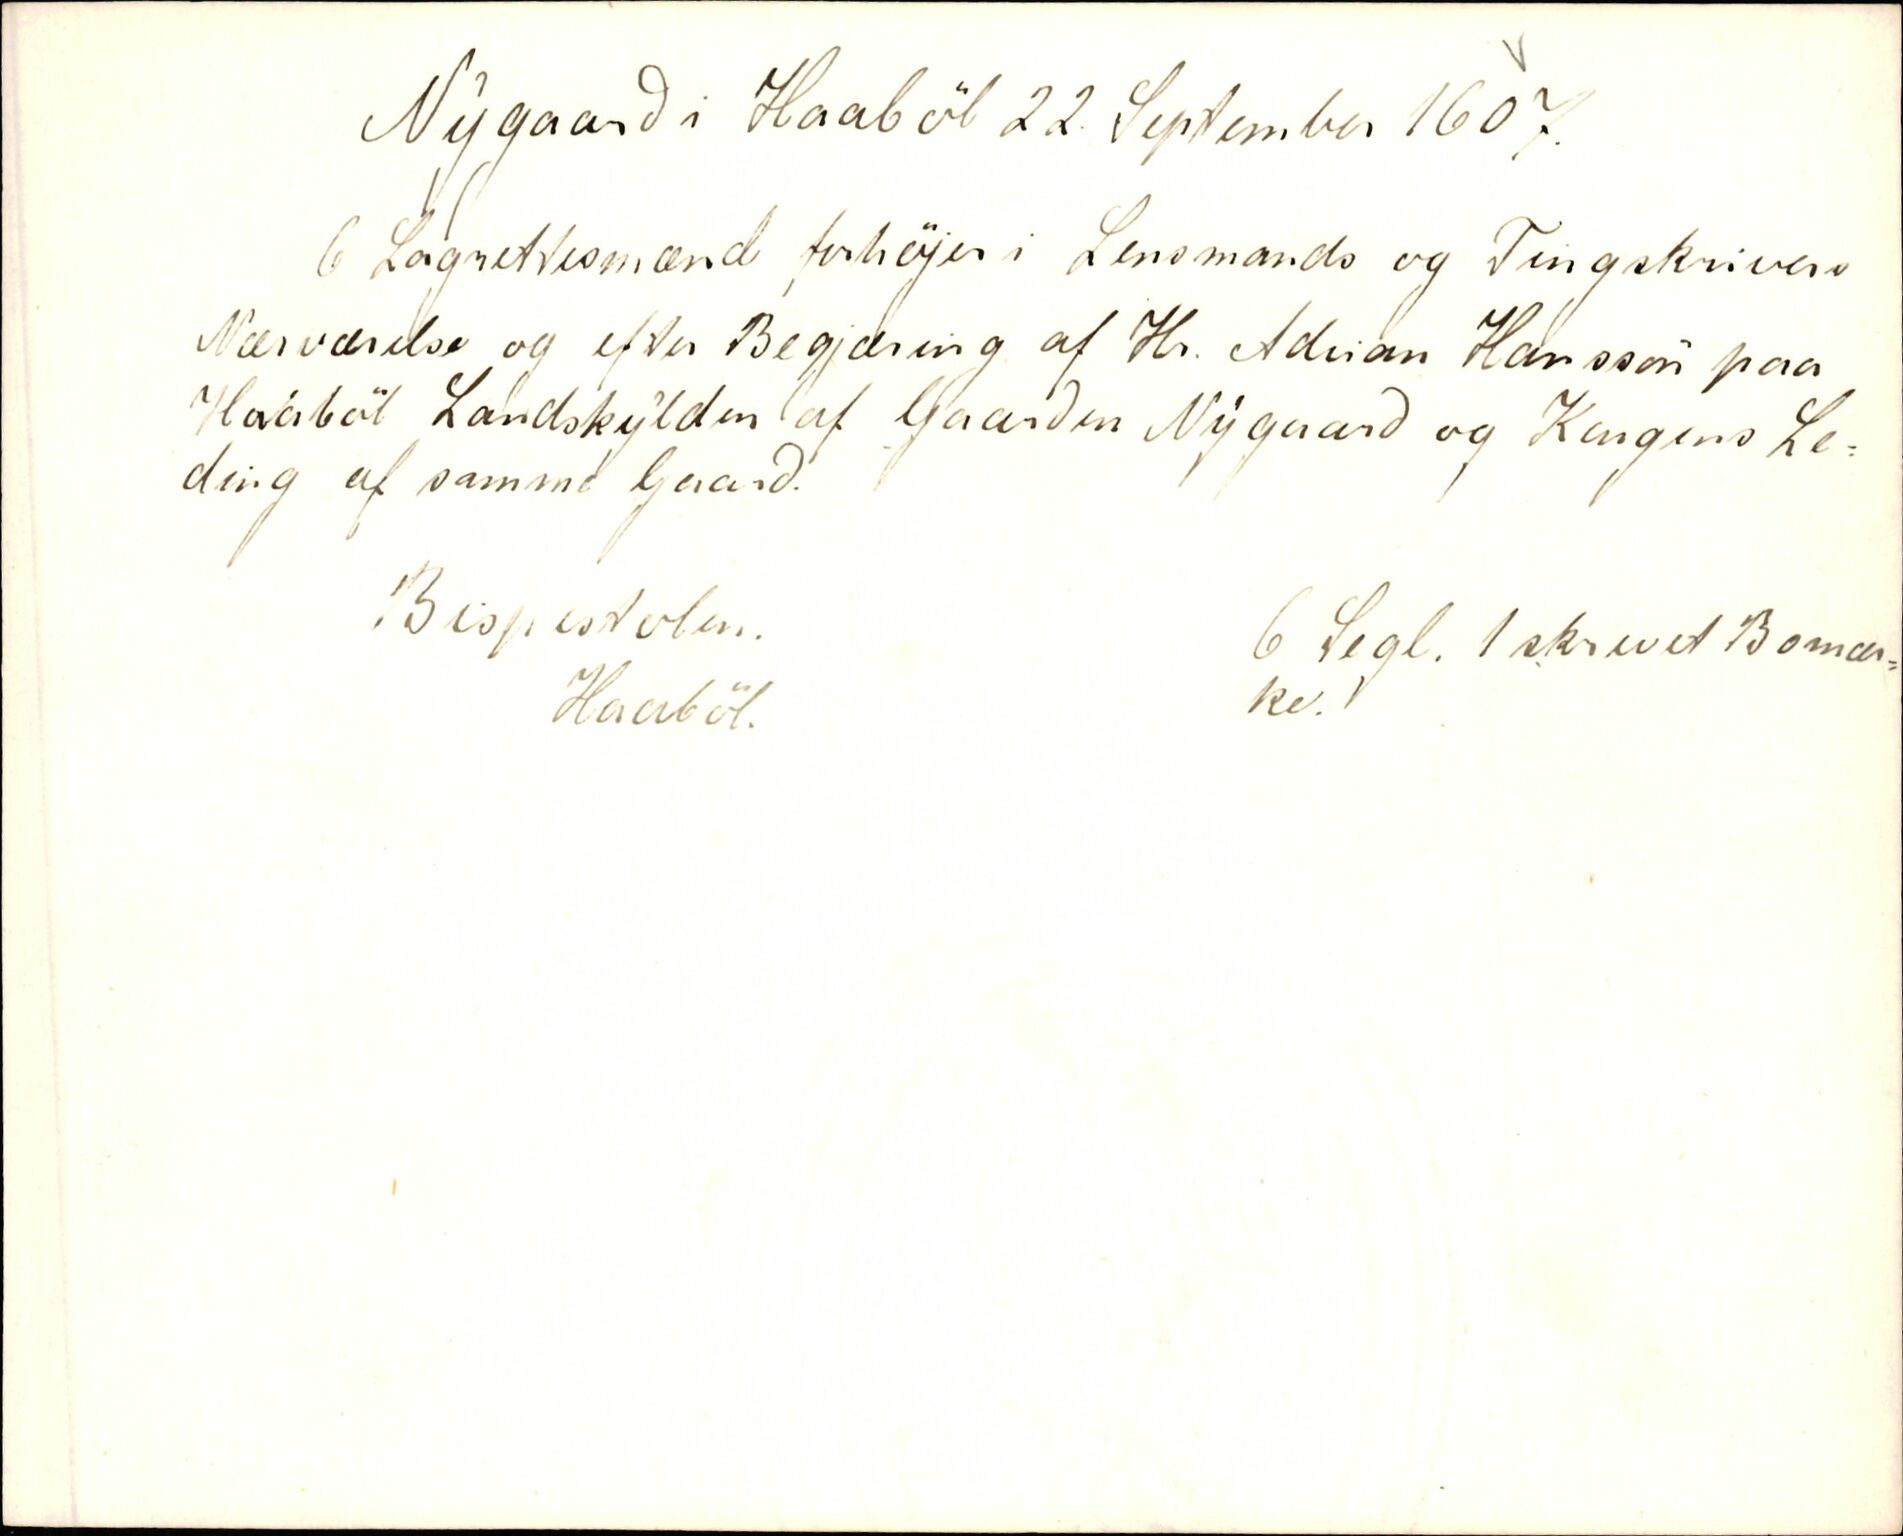 Nÿgaard i Haaböl 22 September 1607.
6 Lagrettesmænd forhöjer i Lensmands og Tingskrivers
Nærværelse og efter Begjæring af Hr. Adrian Hansson paa
Haaböl Landskÿlden af Gaarden Nÿgaard og Kongens Le=
ding af samme Gaard.
Bispestolen.
Haaböl.
6 Segl. 1 skrevet Bomær=
ke.